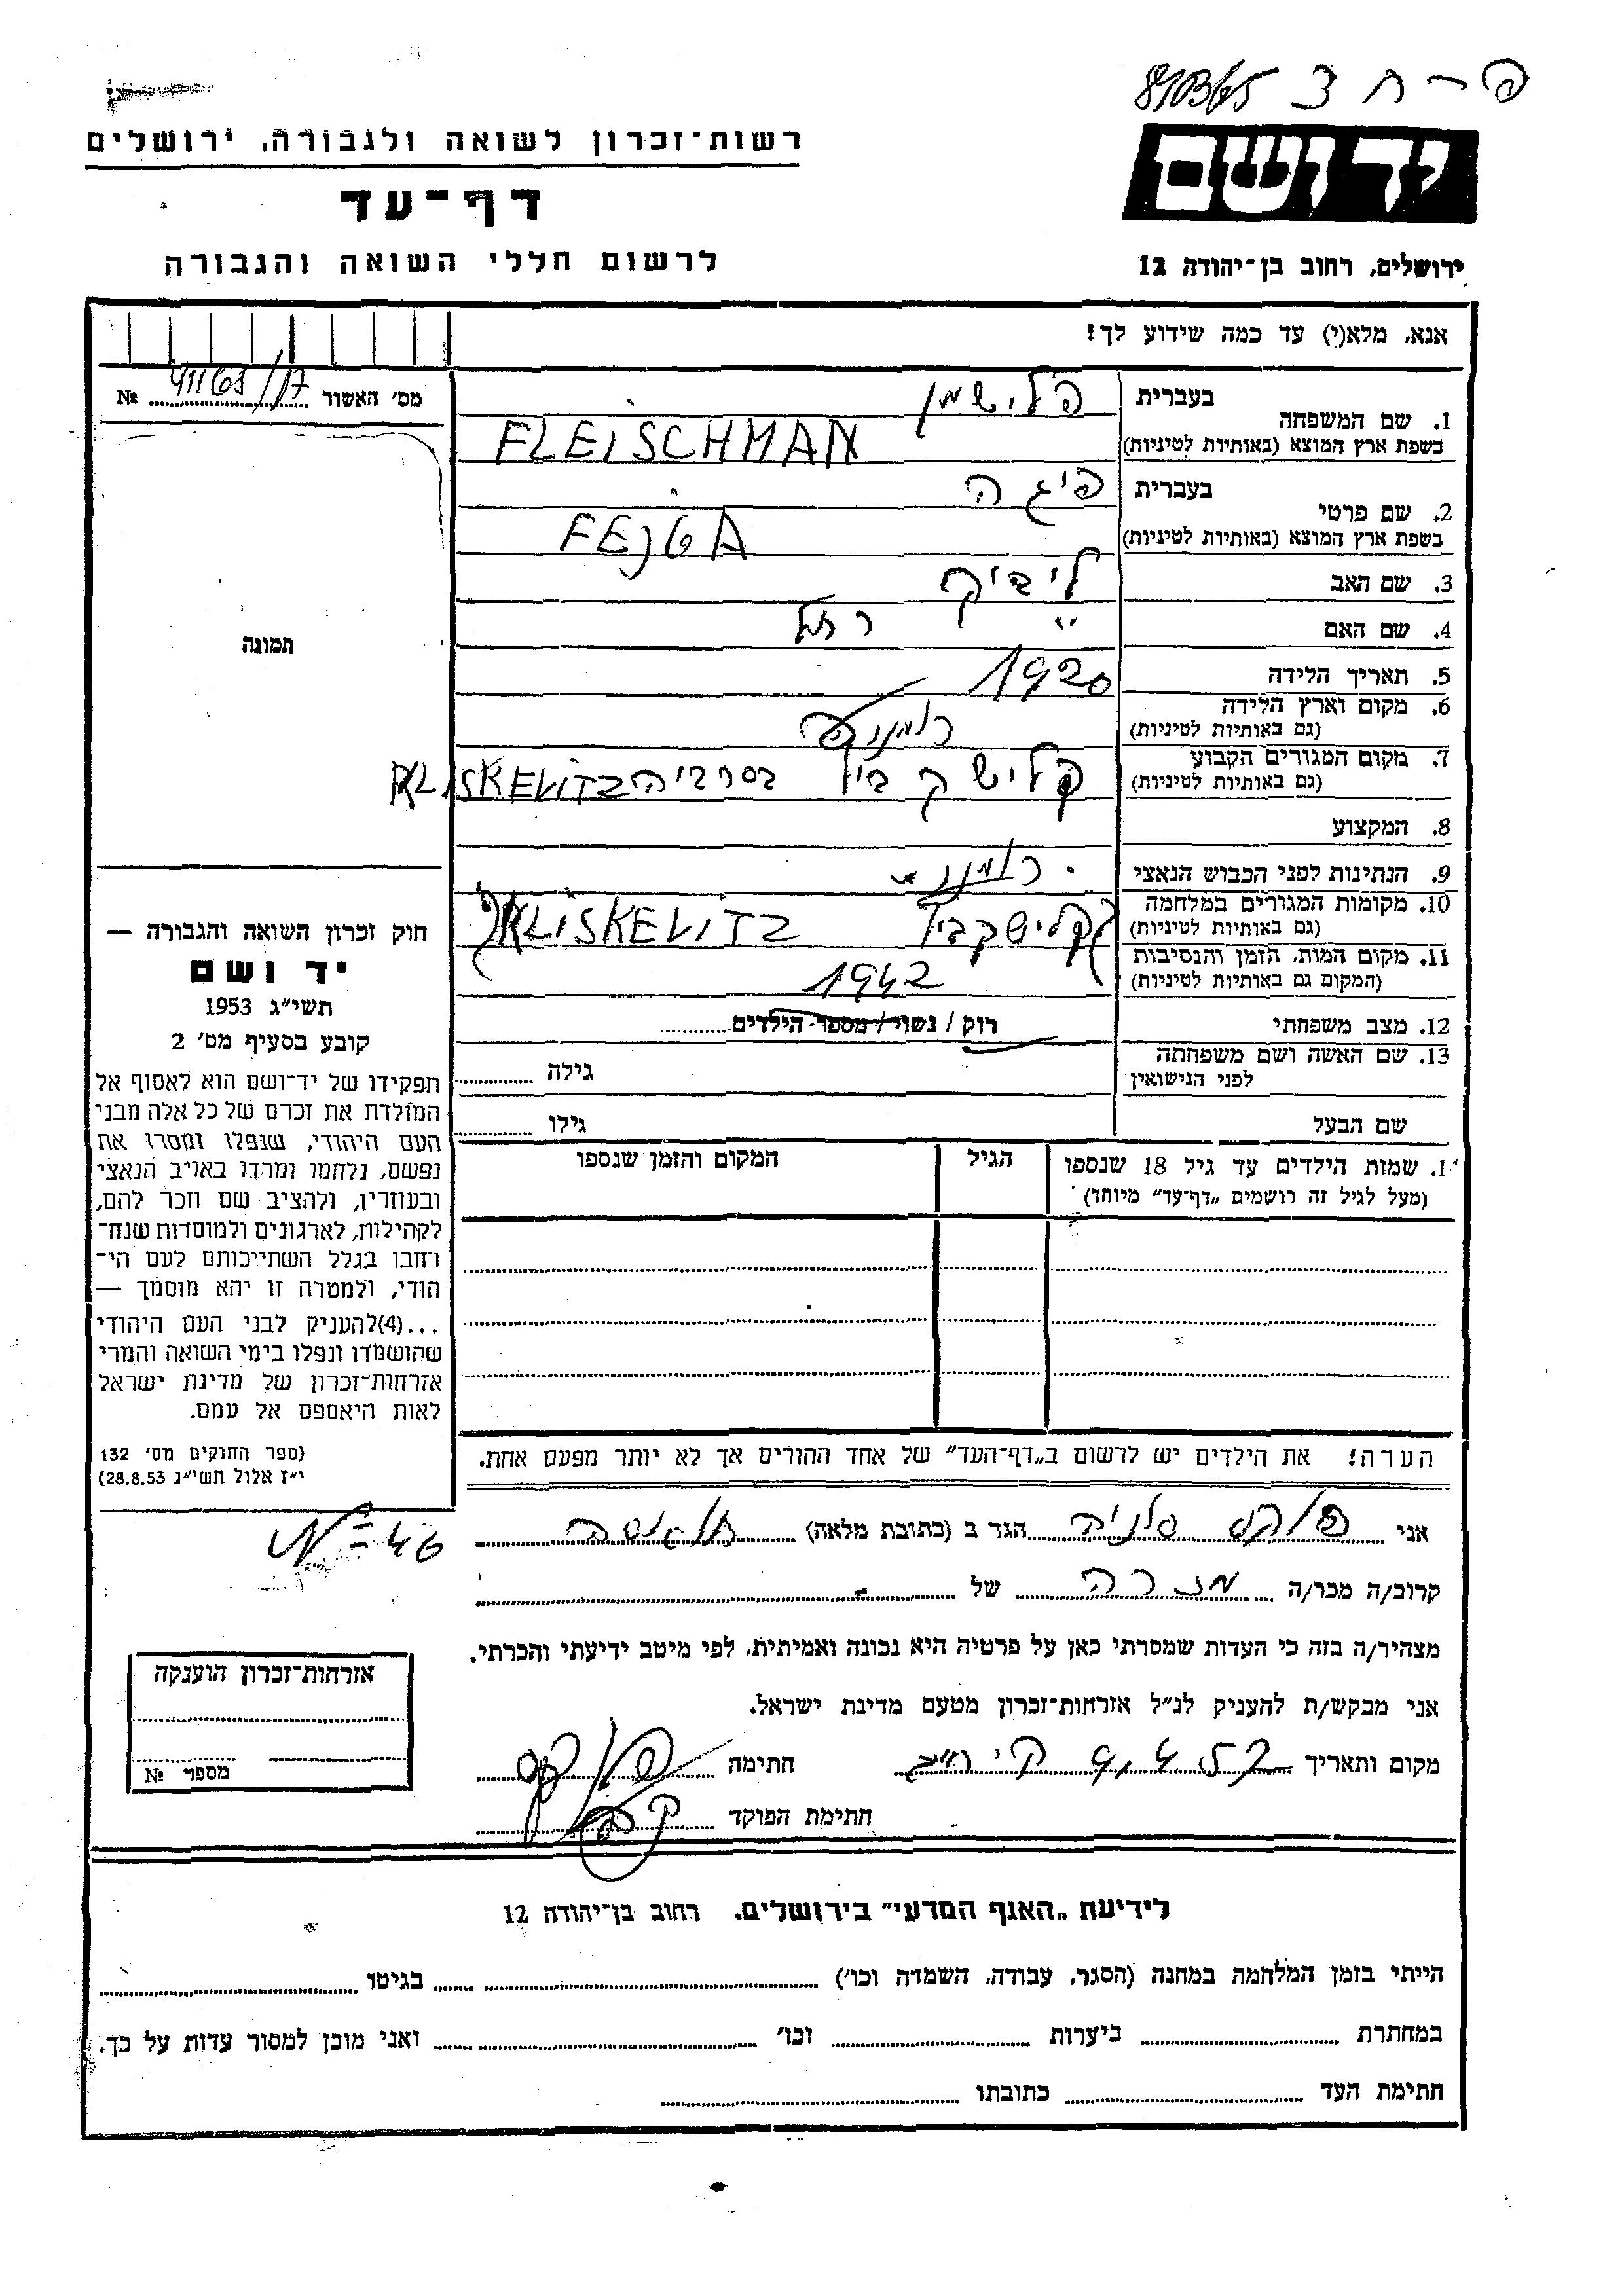 פ - ח צ 810365
רשות-זכרון לשואה ולגבורה, ירושלים
יד ושם
דף-עד
לרשום חללי השואה והגבורה
ירושלים, רחוב בן-יהודה 12
אנא, מלא(י) עד כמה שידוע לך!
מס' האשור № 41165/17
1. שם המשפחה
בעברית פלישמן
בשפת ארץ המוצא (באותיות לטיניות) FLEISCHMAN
2. שם פרטי
בעברית פיגה
בשפת ארץ המוצא (באותיות לטיניות) FEJGA
3. שם האב לייביק
4. שם האם רחל
5. תאריך הלידה 1920
6. מקום וארץ הלידה
(גם באותיות לטיניות) רומניה
7. מקום המגורים הקבוע
(גם באותיות לטיניות) קלישקביץ בסרביה KLISKEVITZ
8. המקצוע
9. הנתינות לפני הכבוש הנאצי רומני
10. מקומות המגורים במלחמה
(גם באותיות לטיניות) קלישקביץ KLISKEVITZ
11. מקום המות, הזמן והנסיבות
(המקום גם באותיות לטיניות) 1942
12. מצב משפחתי רווק / נשוי / מספר הילדים
13. שם האשה ושם משפחתה
לפני הנישואין גילה
שם הבעל גילו
1. שמות הילדים עד גיל 18 שנספו
(מעל לגיל זה רושמים „דף-עד" מיוחד)
הגיל
המקום והזמן שנספו
הערה! את הילדים יש לרשום ב„דף-העד" של אחד ההורים אך לא יותר מפעם אחת.
תמונה
חוק זכרון השואה והגבורה —
יד ושם
תשי"ג 1953
קובע בסעיף מס' 2
תפקידו של יד-ושם הוא לאסוף אל
המולדת את זכרם של כל אלה מבני
העם היהודי, שנפלו ומסרו את
נפשם, נלחמו ומרדו באויב הנאצי
ובעוזריו, ולהציב שם וזכר להם,
לקהילות, לארגונים ולמוסדות שנח-
רחבו בגלל השתייכותם לעם הי-
הודי, ולמטרה זו יהא מוסמך —
...(4)להעניק לבני העם היהודי
שהושמדו ונפלו בימי השואה והמרי
אזרחות-זכרון של מדינת ישראל
לאות היאספם אל עמם.
(ספר החוקים מס' 132
י"ז אלול תשי"ג 28.8.53)
אני פוקס סניה הגר ב (כתובת מלאה)
קרוב/ה מכר/ה מכרה של
מצהיר/ה בזה כי העדות שמסרתי כאן על פרטיה היא נכונה ואמיתית, לפי מיטב ידיעתי והכרתי.
אני מבקש/ת להעניק לנ"ל אזרחות-זכרון מטעם מדינת ישראל.
מקום ותאריך חתימה
חתימת הפוקד
אזרחות-זכרון הוענקה
מספר №
לידיעת „האגף המדעי" בירושלים, רחוב בן-יהודה 12
הייתי בזמן המלחמה במחנה (הסגר, עבודה, השמדה וכו') בגיטו
במחתרת ביערות וכו' ואני מוכן למסור עדות על כך.
חתימת העד כתובתו